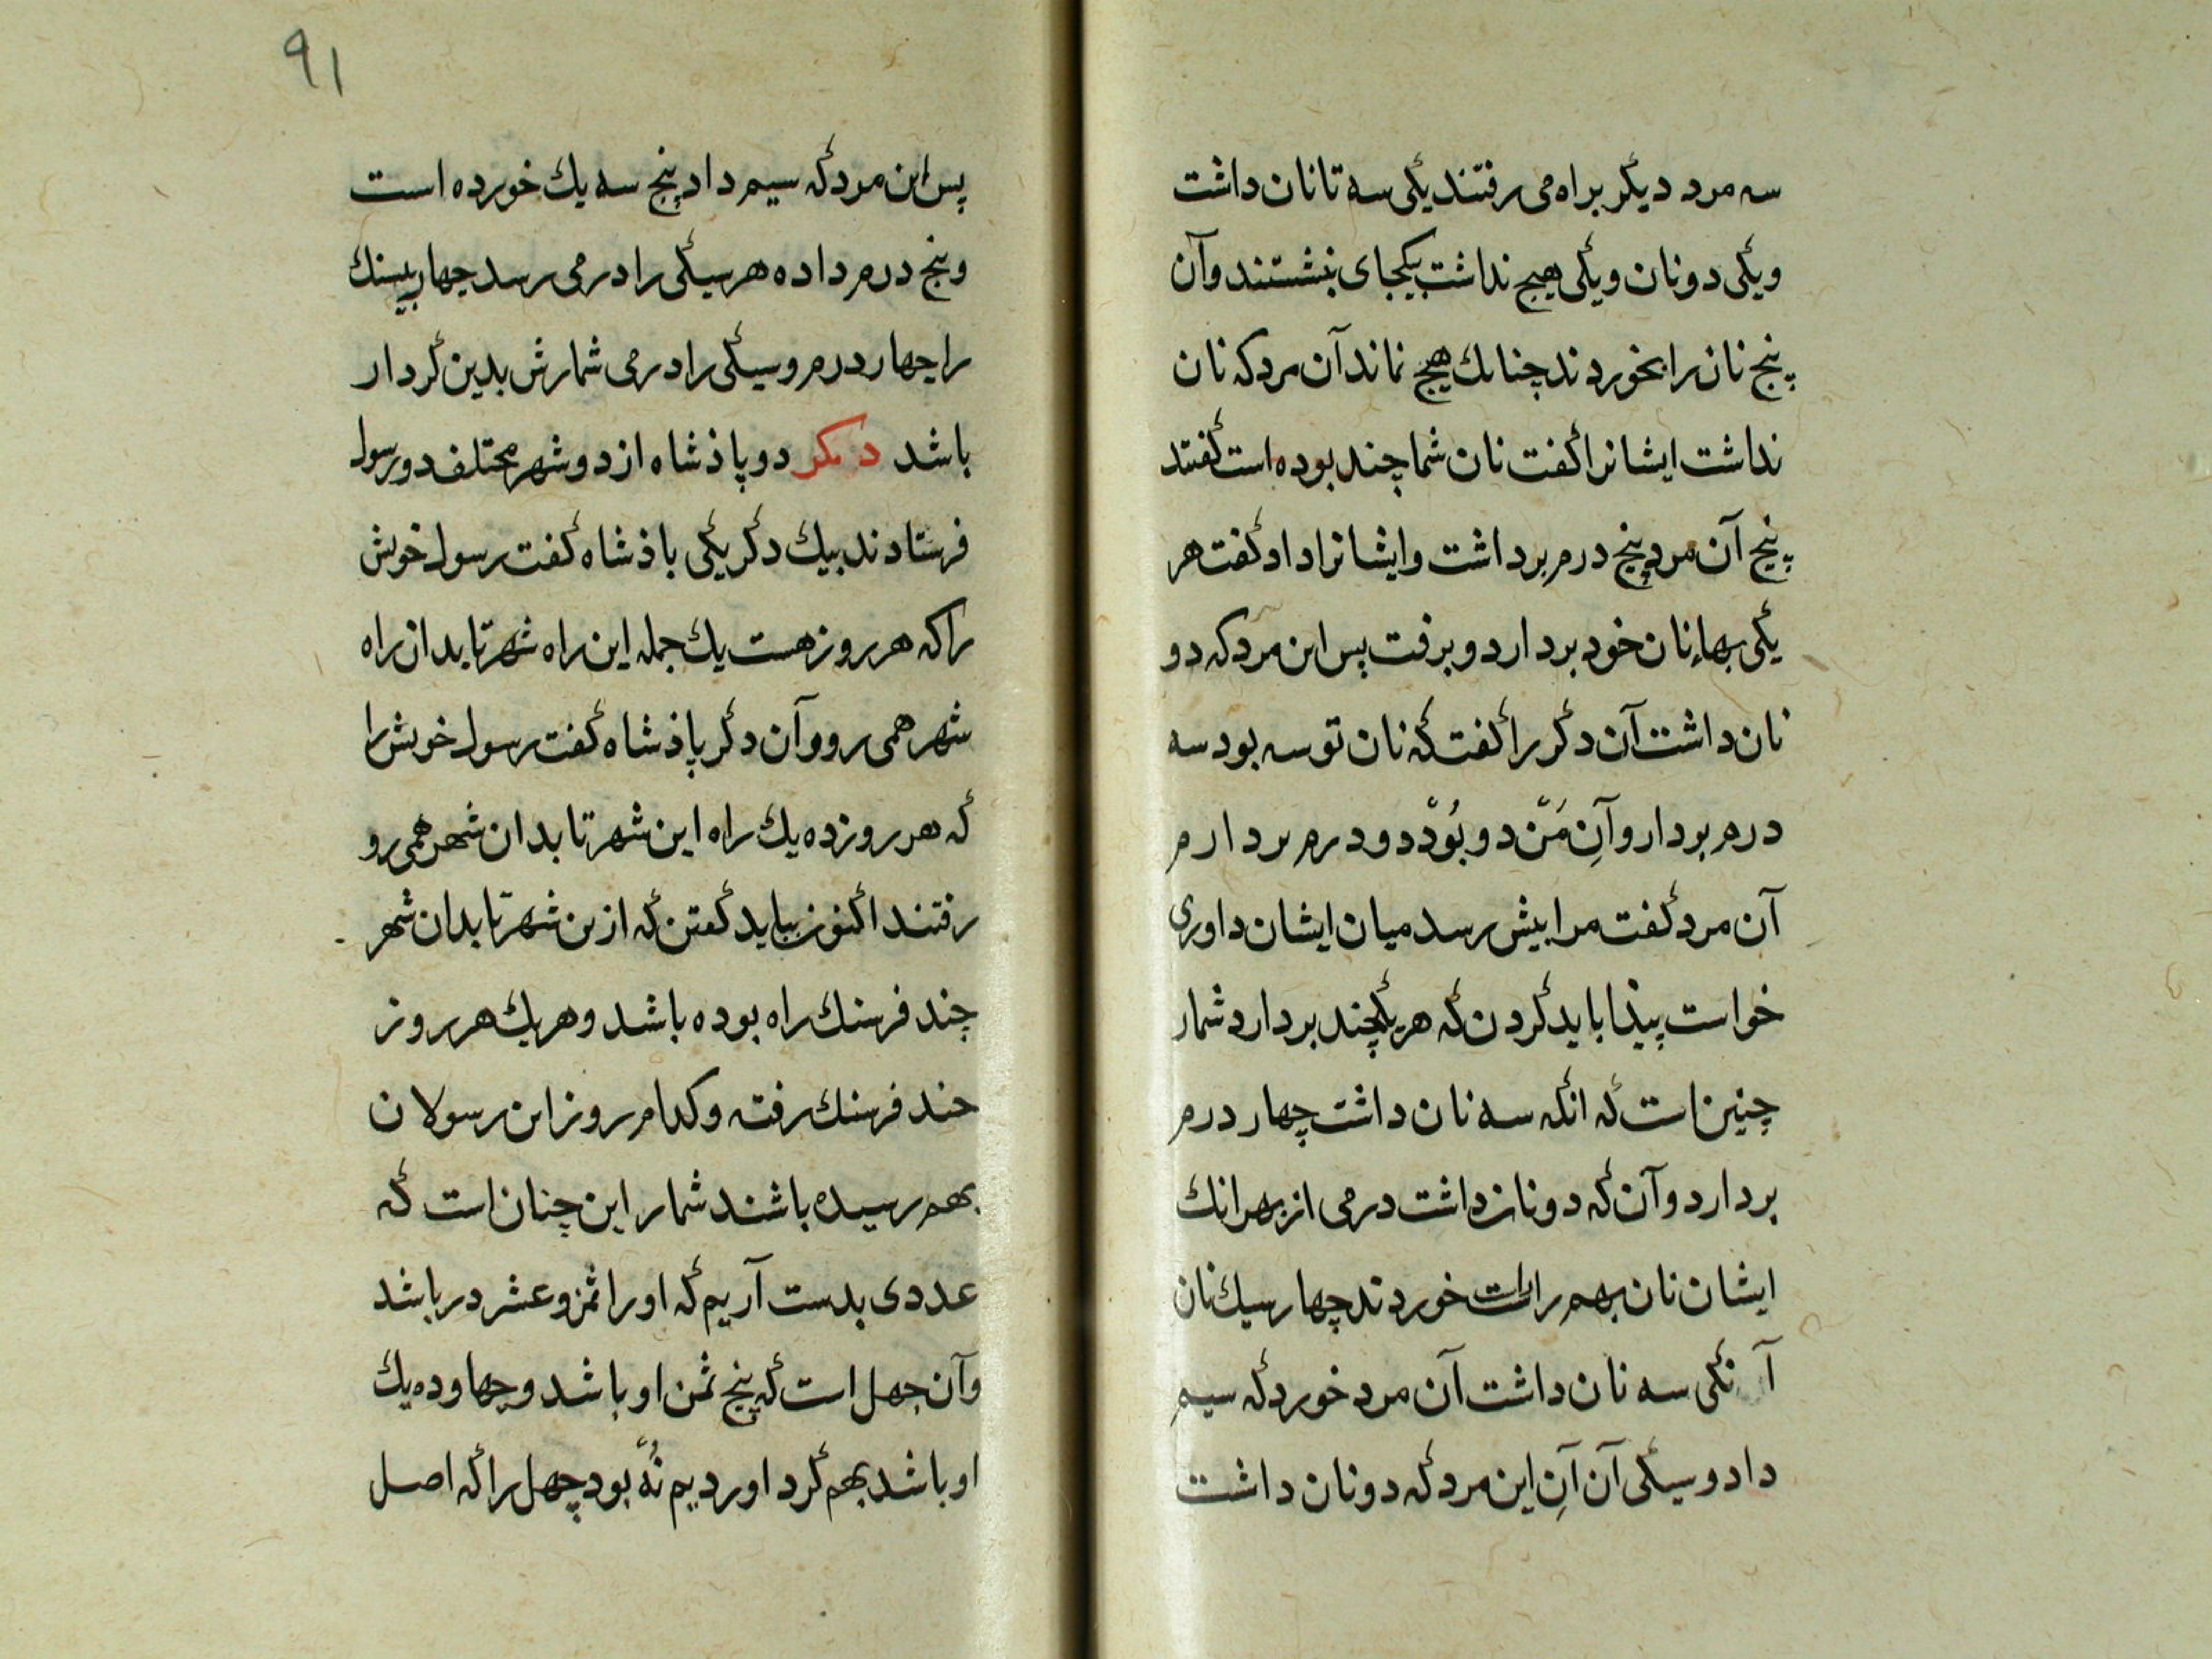 سه مرد دیگر براه می رفتند یکی سه تا نان داشت
ویکی دو نان ویکی هیچ نداشت بیکجای بنشستند وآن
پنج نان را بخوردند چنانك هیچ نماند آن مرد که نان
نداشت ایشانرا گفت نان شما چند بوده است گفتند
پنج آن مرد پنج درم برداشت وایشانرا داد وگفت هر
یکی بهاء نان خود بردارد وبرفت پس این مرد که دو
نان داشت آن دگر را گفت که نان تو سه بود سه
درم بردار وآنِ مَن دو بُوَد دو درم بردارم
آن مرد گفت مرا بیش رسد میان ایشان داوری
خواست پیذا باید کردن که هر یکی چند بردارد شمار
چنین است که انکه سه نان داشت چهار درم
بردارد وآن که دو نان داشت درمی از بهر انك
ایشان نان بهم راست خوردند چهار سیك نان
آنکی سه نان داشت آن مرد خورد که سیم
داد وسیکی آن آنِ این مرد که دو نان داشت
۹۱
پس این مرد که سیم داد پنج سه یك خورده است
وپنج درم داده هر سیکی را درمی رسد چهار سیك
را چهار درم وسیکی را درمی شمارش بدین کردار
باشد دیگر دو پاذشاه از دو شهر مختلف دو رسول
فرستادند بیك دگر یکی باذشاه گفت رسول خویش
را که هر روز هشت یك جمله این راه شهر تا بدان راه
شهر همی رو وآن دگر پاذشاه گفت رسول خویش را
که هر روز ده یك راه این شهر تا بدان شهر همی رو
رفتند اکنون بباید گفتن که ازین شهر تا بدان شهر
چند فرسنك راه بوده باشد وهر یك هر روز
چند فرسنك رفته وکدام روز این رسولان
بهم رسیده باشند شمار این چنان است که
عددی بدست آریم که او را ثمن وعشر در باشد
وآن چهل است که پنج ثمن او باشد وچهار ده یك
او باشد بهم گرد اوردیم نُه بود چهل را که اصل